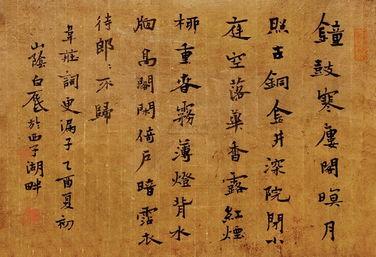 鐘鼓寒廔閣暝月
照古銅金井深院閉小
庭空落華香露紅煙
桺重萅霧薄燈背水
窗高閣閒倚戶暗霑衣
待郎〻不歸
韋莊詞更漏子乙酉夏初
山陰白於西子湖畔